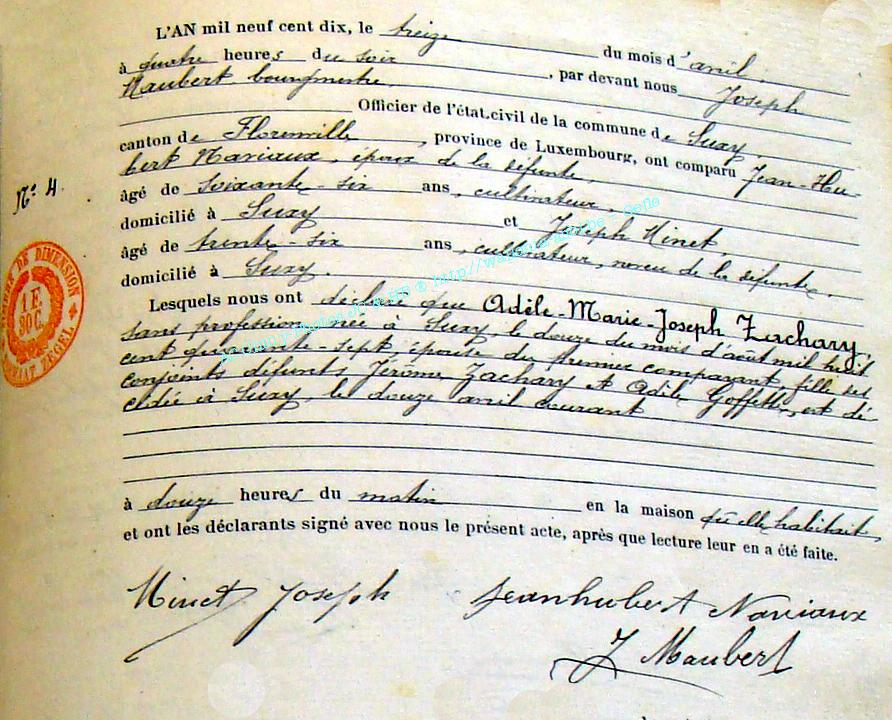 L'AN mil neuf cent dix, le treize du mois d'avril,
à quatre heures du soir, par devant nous Joseph
Maubert bourgmestre
Officier de l'état-civil de la commune de Suxy
canton de Florenville, province de Luxembourg, ont comparu Jean-Hu-
bert Naviaux, époux de la défunte,
N° 4.
âgé de soixante-six ans, cultivateur,
domicilié à Suxy et Joseph Minet,
âgé de trente-six ans, cultivateur, neveu de la défunte,
domicilié à Suxy.
Lesquels nous ont déclaré que Adèle-Marie-Joseph Zachary,
sans profession née à Suxy, le douze du mois d'août mil huit
cent quarante-sept, épouse du premier comparant, fille des
conjoints défunts Jérôme Zachary et Adèle Goffette, est dé-
cédée à Suxy, le douze avril courant
à douze heures du matin en la maison qu'elle habitait,
et ont les déclarants signé avec nous le présent acte, après que lecture leur en a été faite.
Minet Joseph Jeanhubert Naviaux
J Maubert
TIMBRE DE DIMENSION
1 F.
30C.